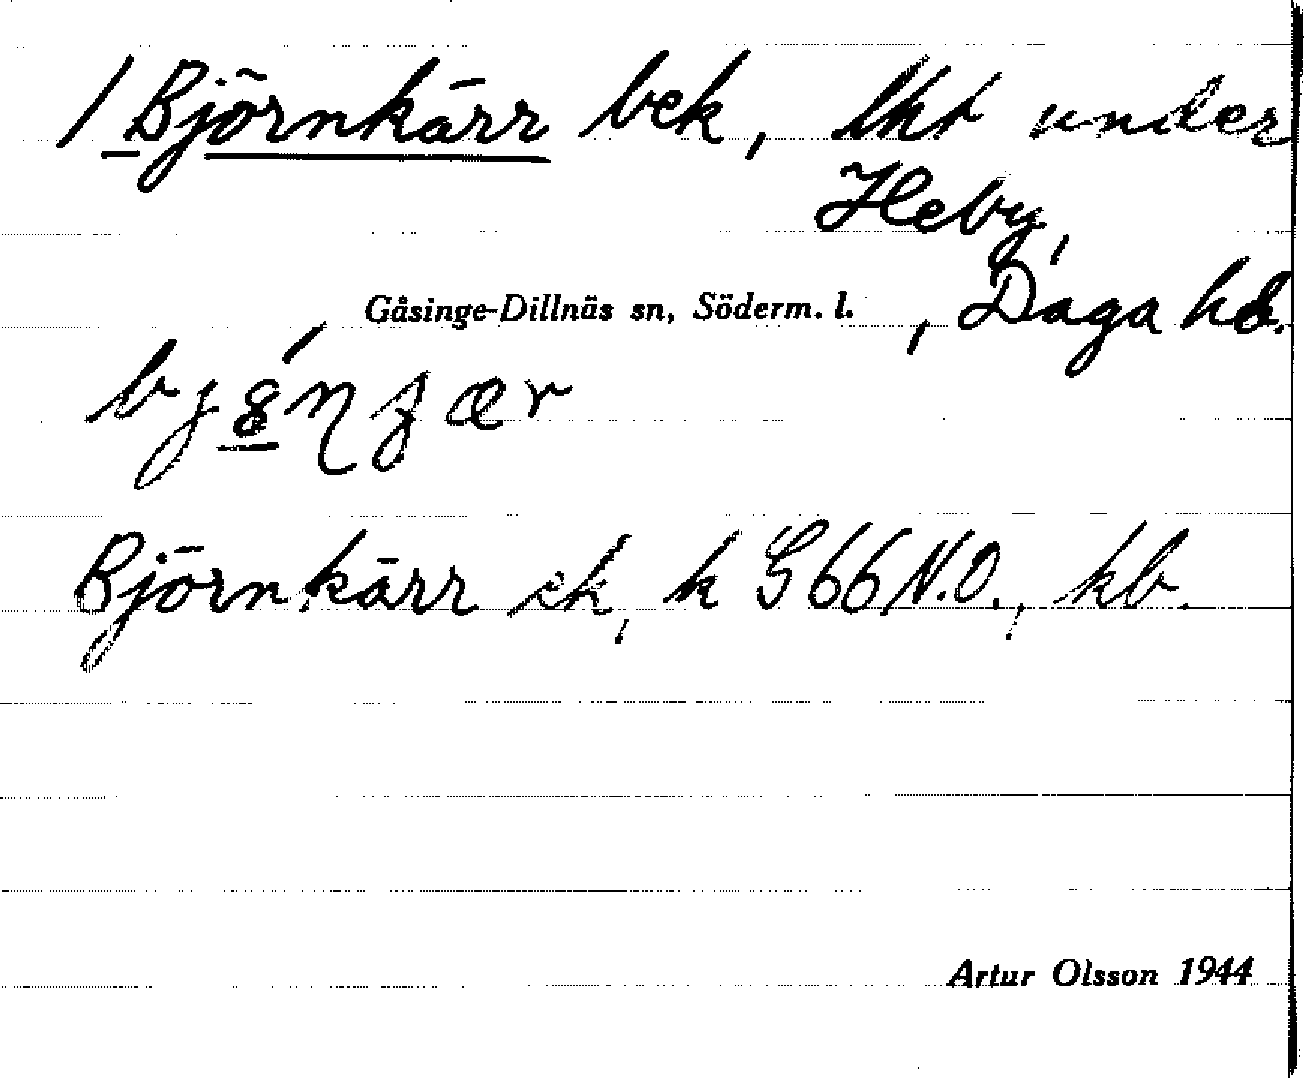 / Björnkärr bek, lht under
Heby,
Gåsinge-Dillnäs sn, Söderm. l. , Daga hd.
Björnkärr ek, k G66 N.O., kb.
Artur Olsson 1944